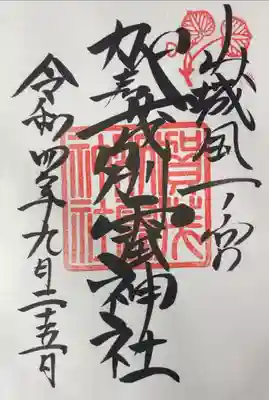 山城国一ノ宮
賀茂別雷神社
令和四年九月二十五日
賀茂
神社